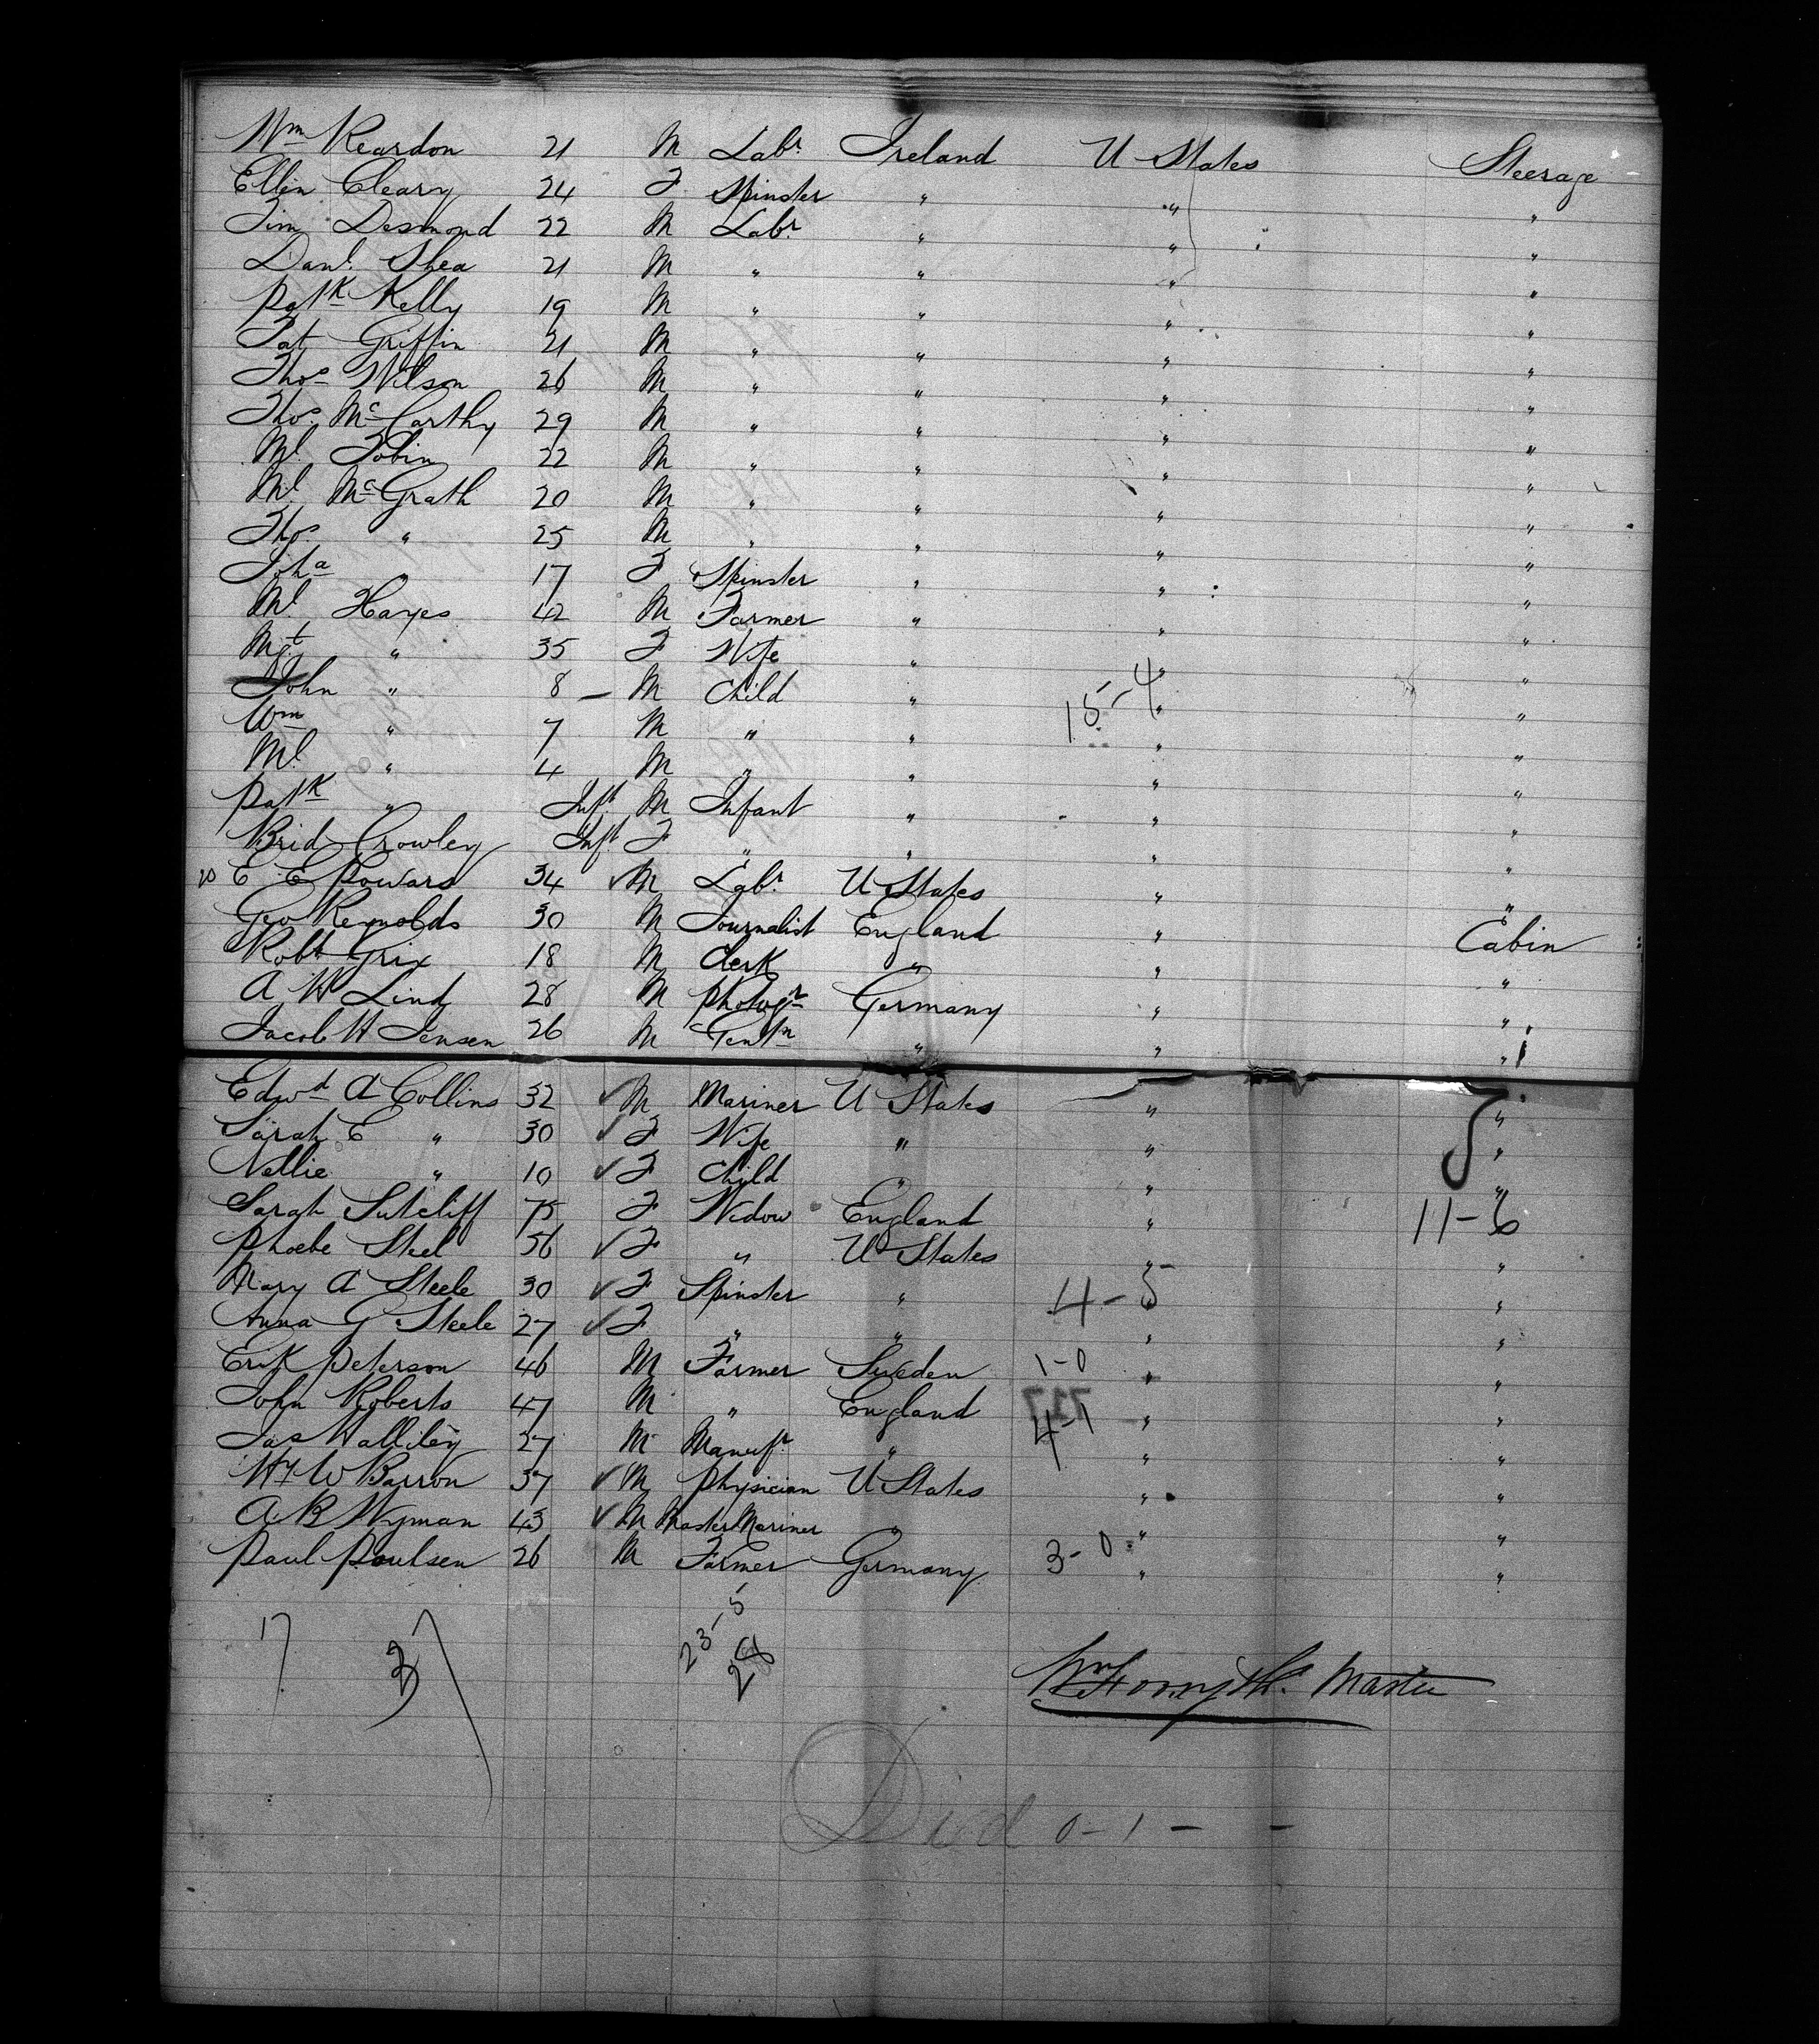 Wm Reardon 21 M Labr. Ireland U States Steerage
Ellen Cleary 24 F Spinster " " "
Tim Desmond 22 M Labr. " " "
Danl. Shea 21 M " " " "
Patk Kelly 19 M " " " "
Pat Griffin 21 M " " " "
Thos Wilson 26 M " " " "
Thos. McCarthy 29 M " " " "
Ml. Tobin 22 M " " " "
Ml. McGrath 20 M " " " "
Thos. " 25 M " " " "
Joha " 17 F Spinster " " "
Ml. Hayes 42 M Farmer " " "
Mgt " 35 F Wife " " "
John " 8 — M Child " " "
15-4
Wm " 7 M " " " "
Ml. " 4 M " " " "
Patk " Inft. M Infant " " "
Brid Crowley Inft. F " " " "
20 E E Powars 34 ✓ M Labr. U States " "
Geo Reynolds 30 M Journalist England " Cabin
Robt Grix 18 M Clerk " " "
A W Lind 28 M Photogr Germany " "
Jacob H Jensen 26 M Gentn " " "
Edwd A Collins 32 ✓ M Mariner U States " "
Sarah E " 30 ✓ F Wife " " "
Nellie " 10 ✓ F Child " " "
Sarah Sutcliff 75 F Widow England " 11-6
Phoebe Steel 56 ✓ F " U States " "
Mary A Steele 30 ✓ F Spinster " 4-5 " "
Anna G Steele 27 ✓ F " " " "
Erik Peterson 46 M Farmer Sweden 1-0 " "
John Roberts 47 M " England " "
737
4-1
Jas Walliley 27 M Manufr. " " "
Hy W Barron 37 ✓ M Physician U States " "
A B Wyman 43 ✓ M Master Mariner " " "
Paul Poulsen 26 M Farmer Germany 3-0 " "
17 37 23-5
28
Wm Forsyth. Master
Died 0-1 - -